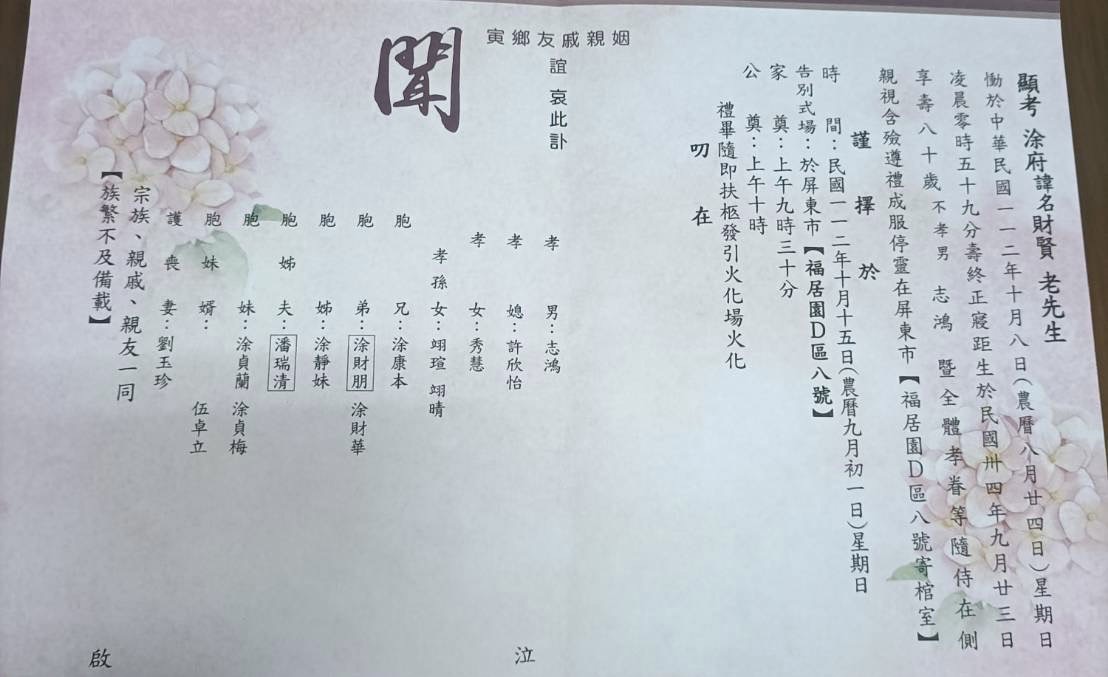 顯考 涂府諱名財賢 老先生
慟於中華民國一一二年十月八日(農曆八月廿四日)星期日
凌晨零時五十九分壽終正寢距生於民國卅四年九月廿三日
享壽八十歲不孝男 志鴻 暨全體孝眷等隨侍在側
親視含殮遵禮成服停靈在屏東市【福居園D區八號寄棺室】
謹擇於
時 間:民國一一二年十月十五日(農曆九月初一日)星期日
告別式場:於屏東市【福居園D區八號】
家 奠:上午九時三十分
公 奠:上午十時
禮畢隨即扶柩發引火化場火化
叨在
姻親戚友鄉寅
誼 哀此訃
聞
孝 男:志鴻
孝 媳:許欣怡
孝 女:秀慧
孝孫女:翊瑄 翊晴
胞 兄:涂康本
胞 弟:涂財朋 涂財華
胞 姊:涂靜妹
胞姊夫:潘瑞清
胞 妹:涂貞蘭 涂貞梅
胞妹婿: 伍卓立
護喪妻:劉玉珍
泣
宗族、親戚、親友一同
【族繁不及備載】
啟